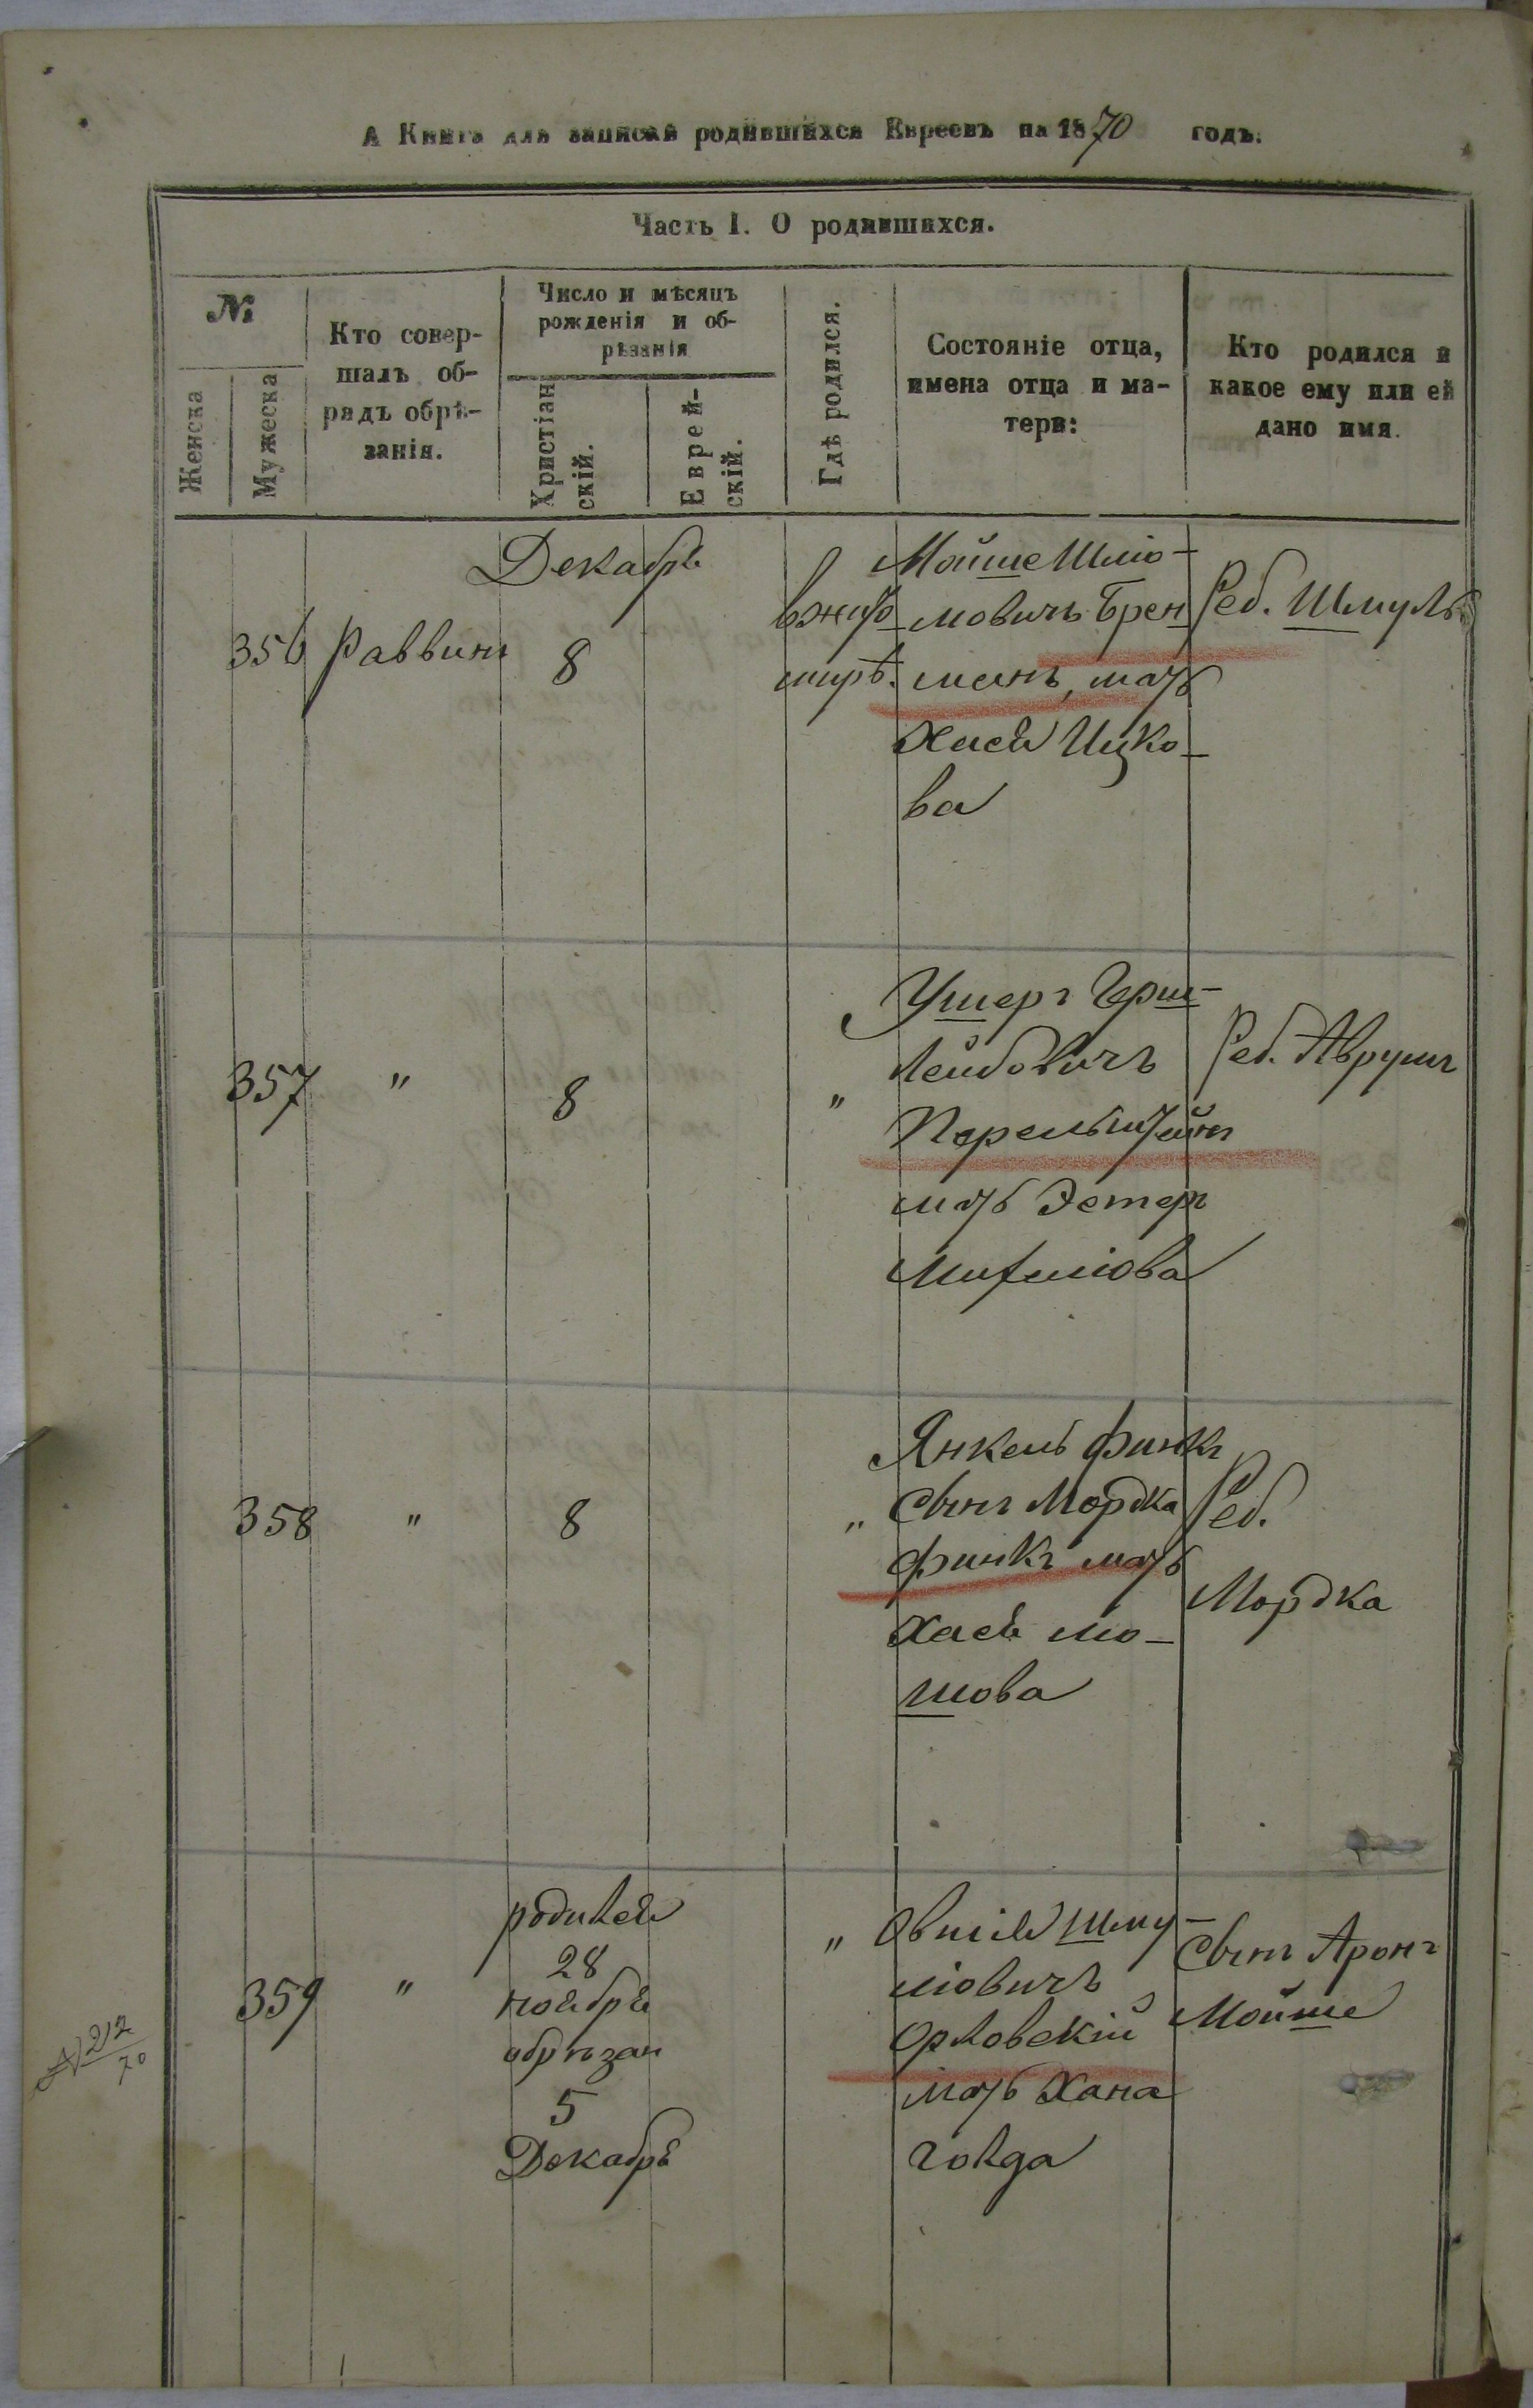 А Книга для записки родившихся Евреевъ на 1870 годъ.
Часть I. О родившихся.
№
Женска
Мужеска
Кто совер-
шалъ об-
рядъ обрѣ-
занія.
Число и мѣсяцъ
рожденія и об-
рѣзанія
Христіан
скій.
Еврей-
скій.
Гдѣ родился.
Состояніе отца,
имена отца и ма-
тери:
Кто родился и
какое ему или ей
дано имя.
Декабрь
356
Раввинъ
8
в Жито
мирѣ.
Мойше Шлio-
мовичъ Брен
манъ, мать
Хася Ицко-
ва
Реб. Шмуль
357
"
8
"
Ушеръ Герш-
Лейбовичъ
Перельштейнъ
мать Эстеръ
Михелiова
Реб. Аврумъ
358
"
8
"
Янкель Финкъ
Сынъ Мордка
Финкъ мать
Хася Мо-
шова
Реб.
Мордка
359
"
родился
28
ноября
обрѣзан
5
Декабря
"
Овшiя Шму-
лiовичъ
Орловскiй
мать Хана
Голда
Сынъ Аронъ
Мойше
№ 212
70